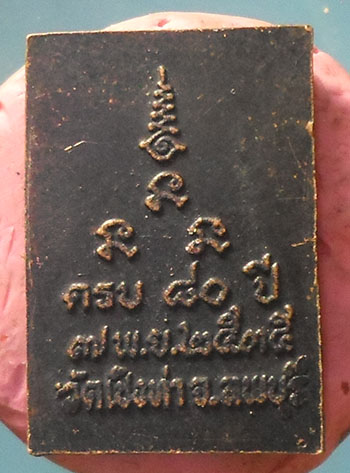 ครบ ๘๐ ปี
๗ พ.ย.๒๕๓๕
วัดเชิงท่า จ.ลพบุรี